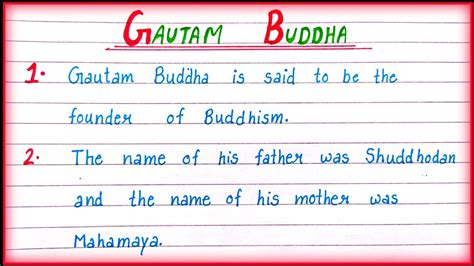 GAUTAM BUDDHA
1. Gautam Buddha is said to be the
founder of Buddhism.
2. The name of his father was Shuddhodan
and the name of his mother was
Mahamaya.